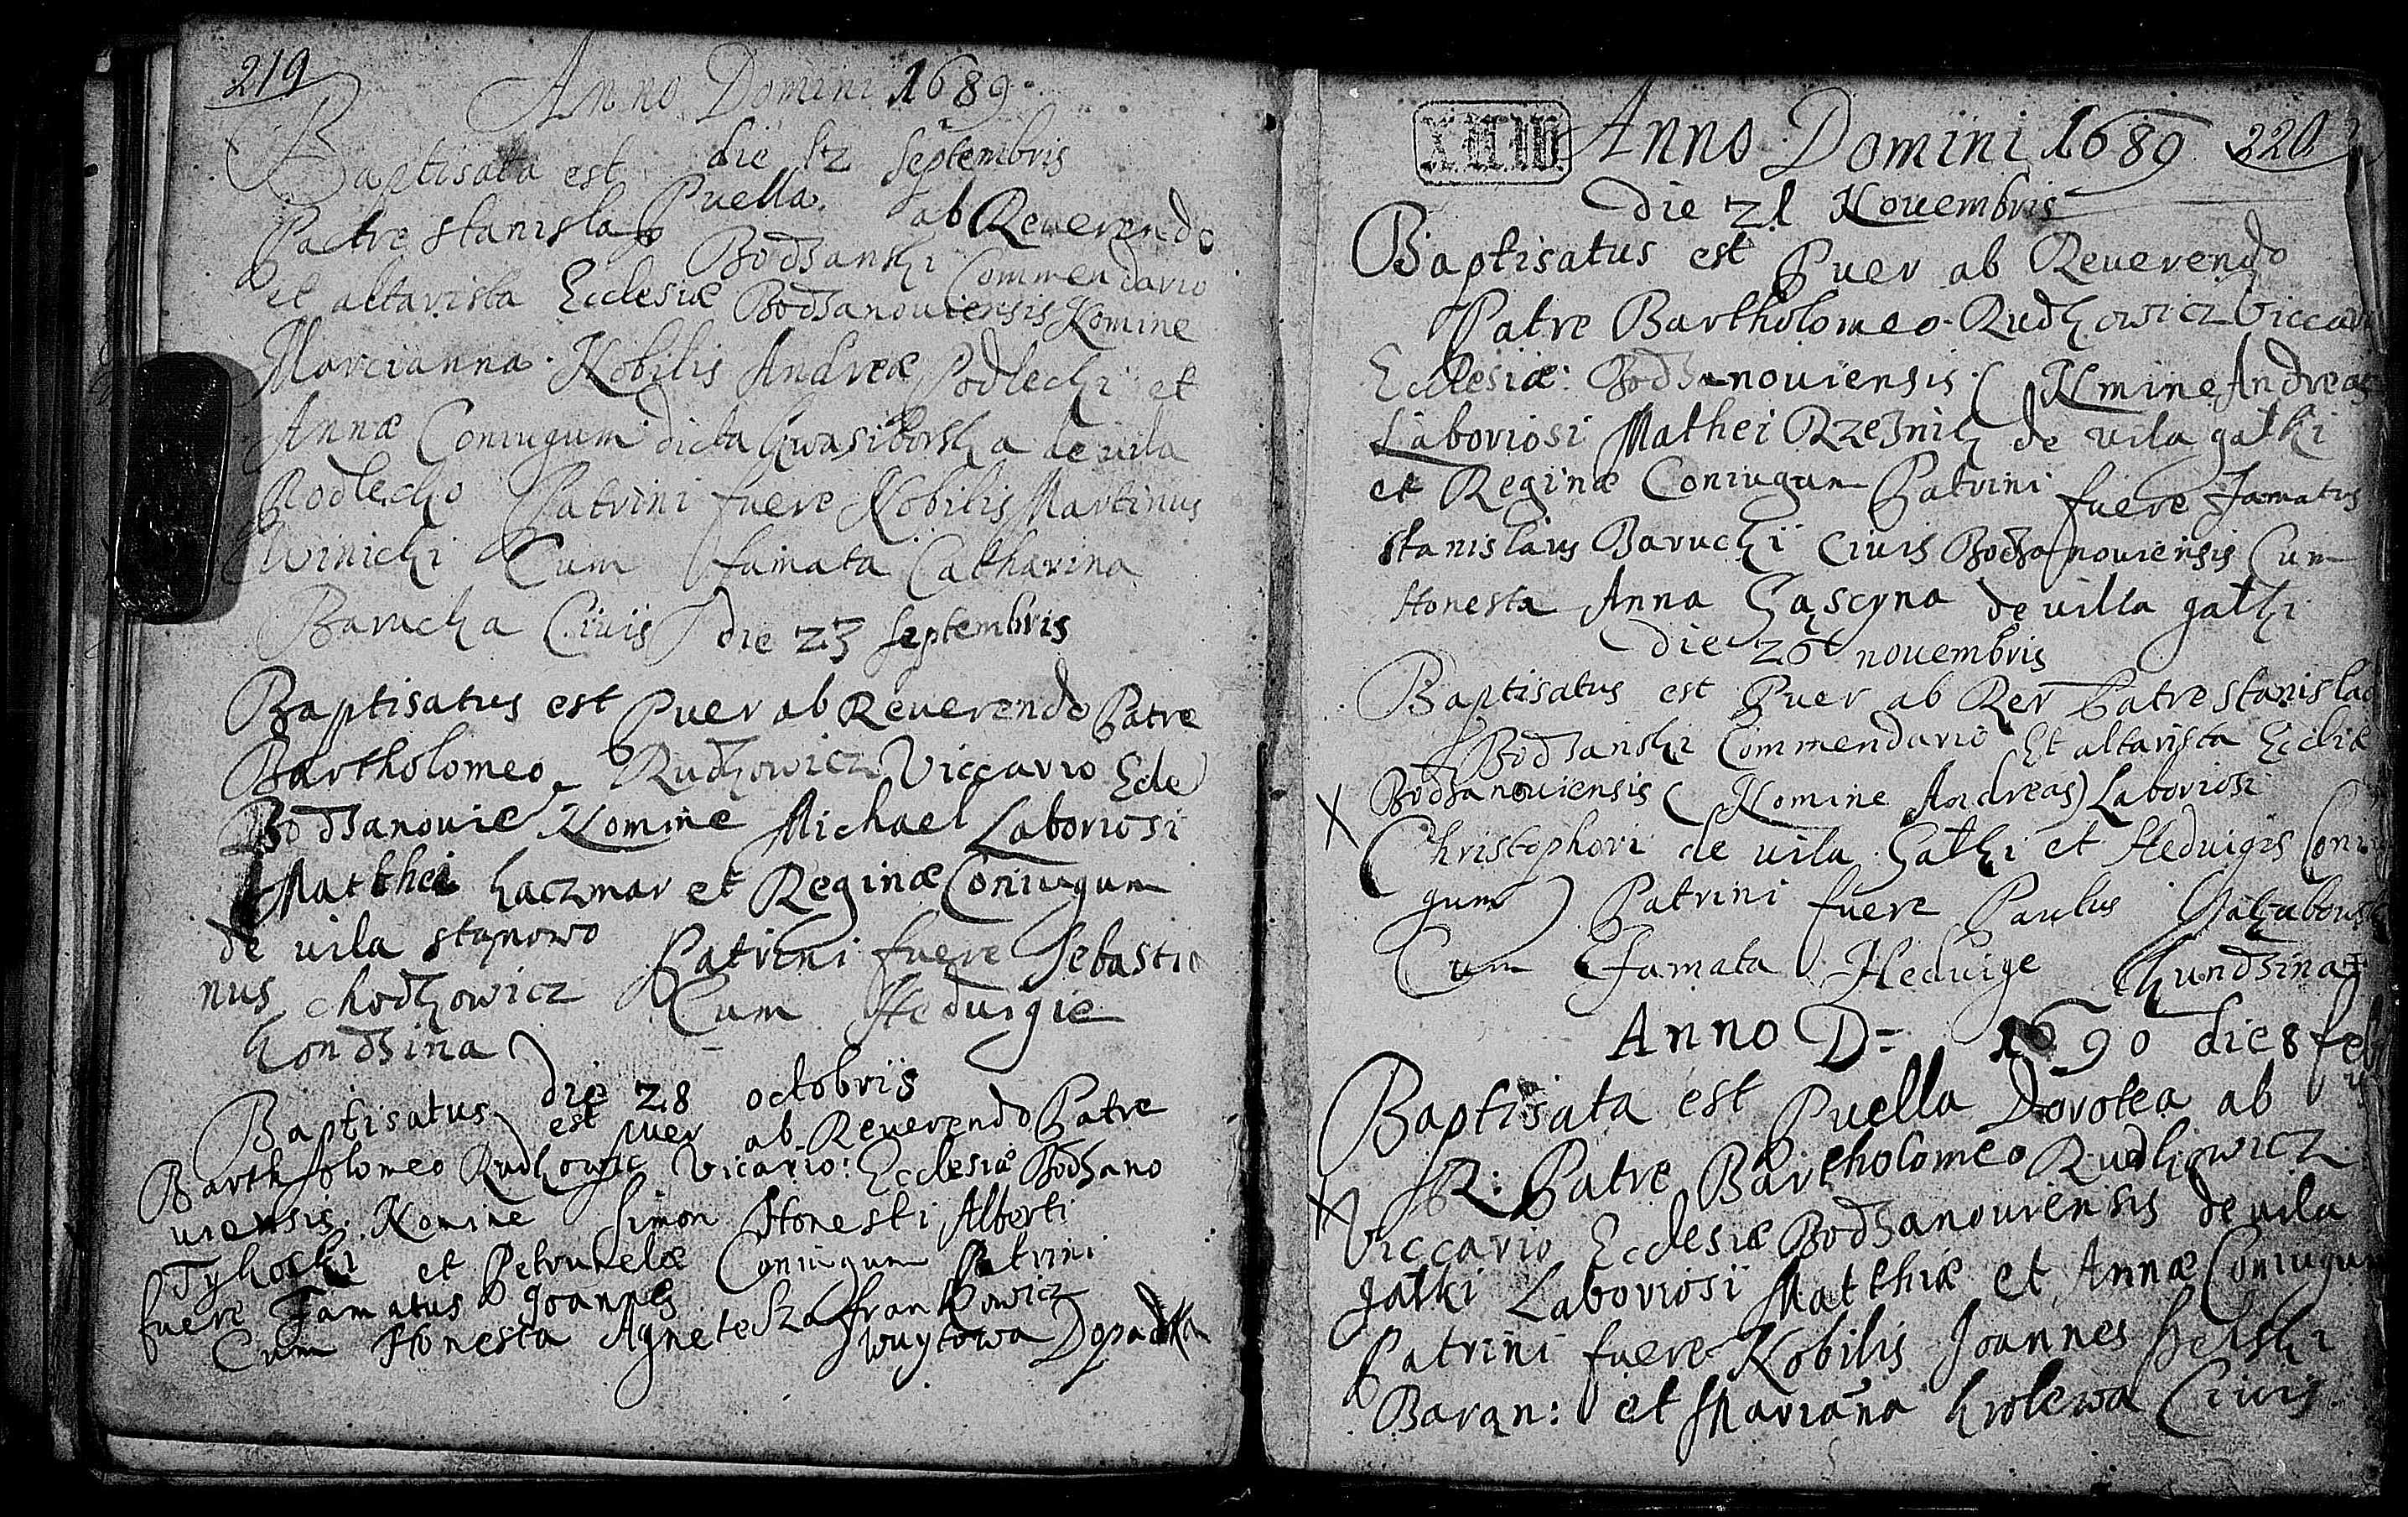 219
Anno Domini 1689
die 12 Septembris
Baptisata est Puella ab Reuerendo
Patre Stanislao Bodzanski Commendario
et altarista Ecclesiæ Bodzanouiensis Nomine
Marcianna Nobilis Andreæ Podlecki et
Annæ Coniugum dicta de uila
Podlecko Patrini fuere Nobilis Martinus
Winicki Cum famata Catharina
Barucka Ciuis die 23 Septembris
Baptisatus est Puer ab Reuerendo Patre
Bartholomeo Rudkowicz Viccario Ecle
Bodzanouie Nomine Michael Laboriosi
Matthei kaczmar et Reginæ Coniugum
de uila stanowo Patrini fuere Sebastia
nus chodkowicz Cum Heduigie
kondzina
die 28 octobris
Baptisatus est puer ab Reuerendo Patre
Bartholomeo Rudkowic Vicario: Ecclesiæ Bodzano
uiensis Nomine Simon Honesti Alberti
et Petrunelæ Coniugum Patrini
fuere Famatus Joannes frankowicz
Cum Honesta Agneteska wuytowa
XIIII Anno Domini 1689 220
die 21 Nouembris
Baptisatus est Puer ab Reuerendo
Patre Bartholomeo Rudkowicz Viccari
Ecclesiæ: Bodzanouiensis (Nmine Andreas
Laboriosi Mathei Rzeznik de uila gatki
et Reginæ Coniugum Patrini fuere Famatus
Stanislaus Barucki Ciuis Bodzanouiensis Cum
Honesta Anna Gąscyna de uilla gatki
die 26 nouembris
Baptisatus est Puer ab Rer Patre Stanislao
Bodzanski Commendario Et altarista Eccliæ
X Bodzanouiensis (Nomine Andreas) Laboriosi
Christophori de uila Gatki et Heduigis Coniu
gum) Patrini fuere Paulus
Cum Famata Heduige kundzina
Anno D= 1690 die 8 feb
Baptisata est Puella Dorotea ab
R: Patre Bartholomeo Rudkowicz
X Viccario Ecclesiæ Bodzanouiensis de uila
gatki Laboriosi Matthiæ et Annæ Coniugum
Patrini fuere Nobilis Joannes
Baran: et Mariãna krolewa Ciuis